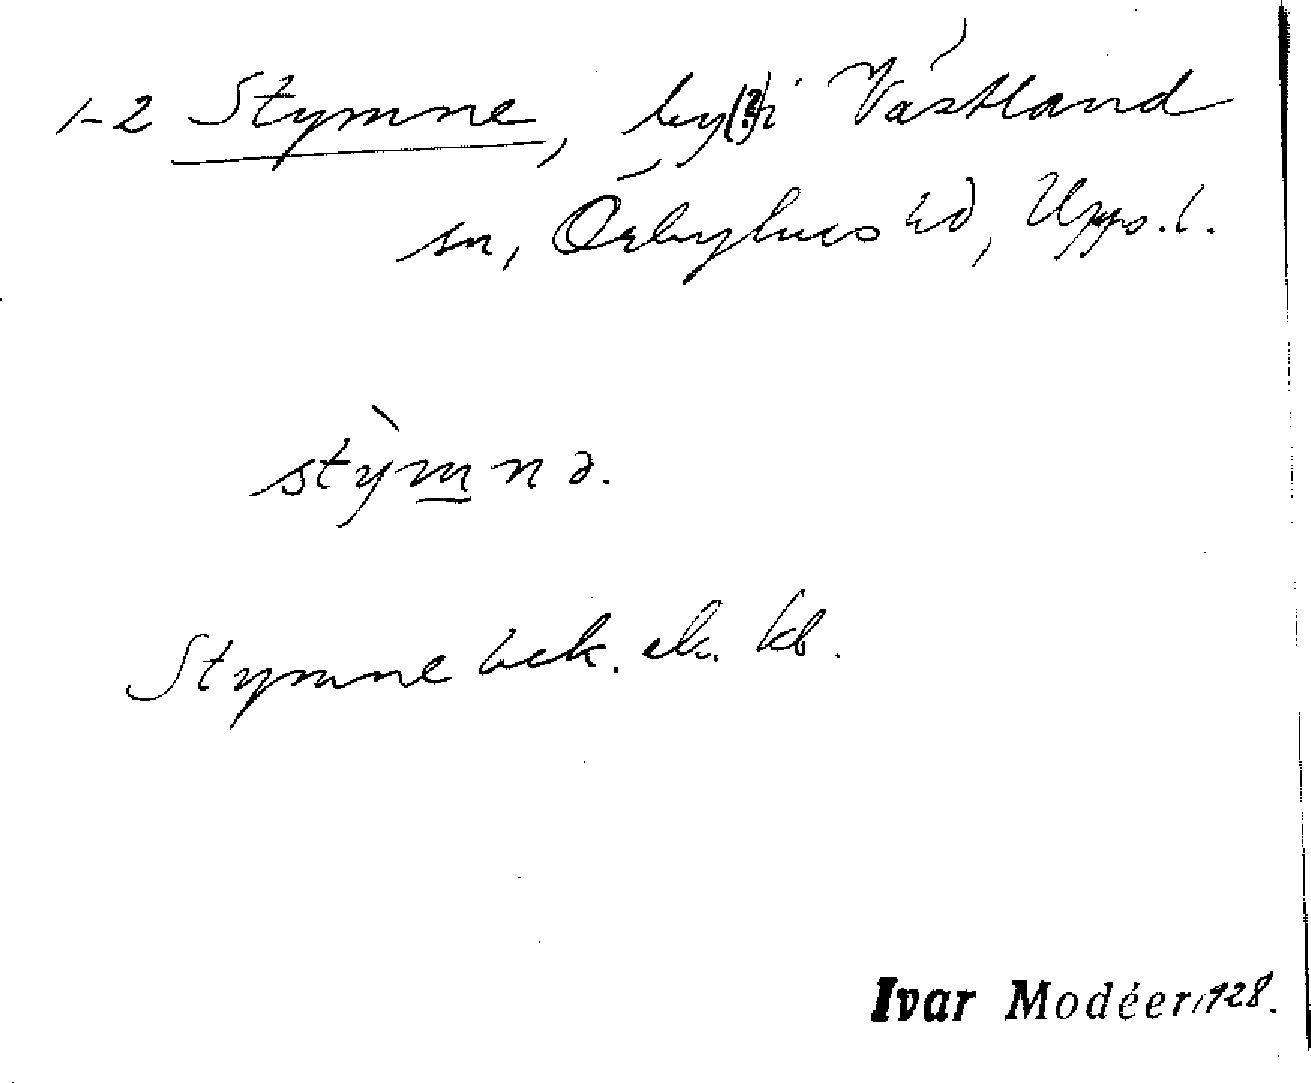 1-2 Stymne, by(?) i Västland
sn, Örbyhus hd, Upps. l.
stỳmnə.
Stymne bek. ek. kb.
Ivar Modéer, 1928.